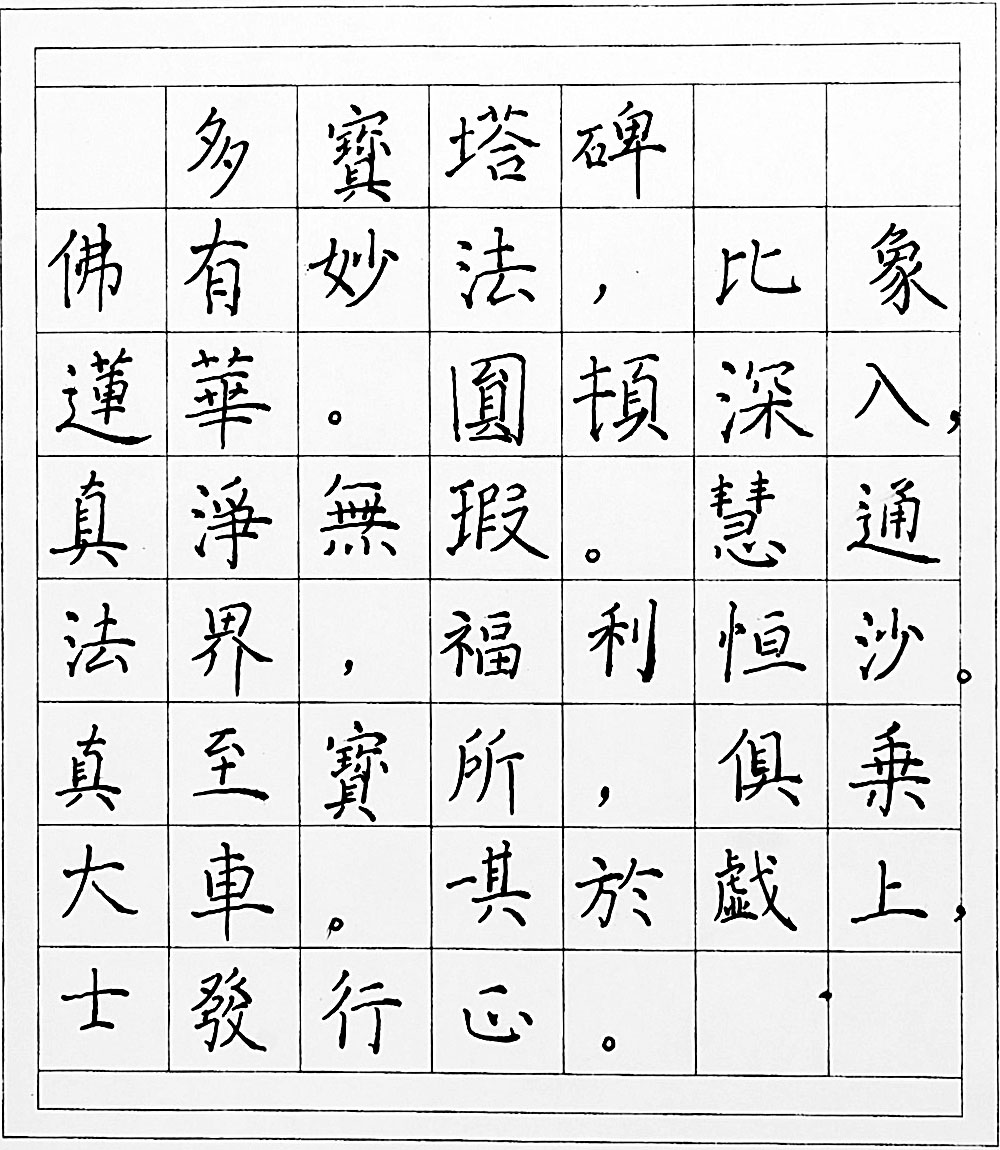 多寶塔碑
佛有妙法，比象
蓮華。圓頓深入，
真淨無瑕。慧通
法界，福利恒沙。
真至寶所，俱乗
大車。其於戯上，
士發行正。